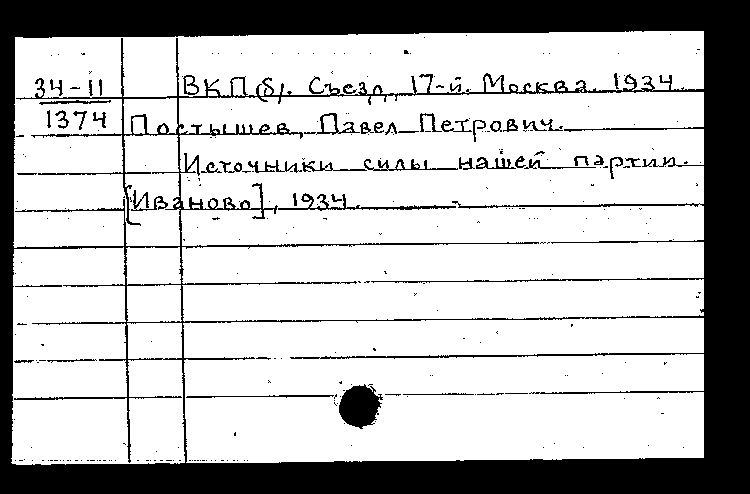 34-11 ВКП(б). Съезд, 17-й. Москва. 1934.
1374 Постышев, Павел Петрович.
Источники силы нашей партии.
[Иваново], 1934.